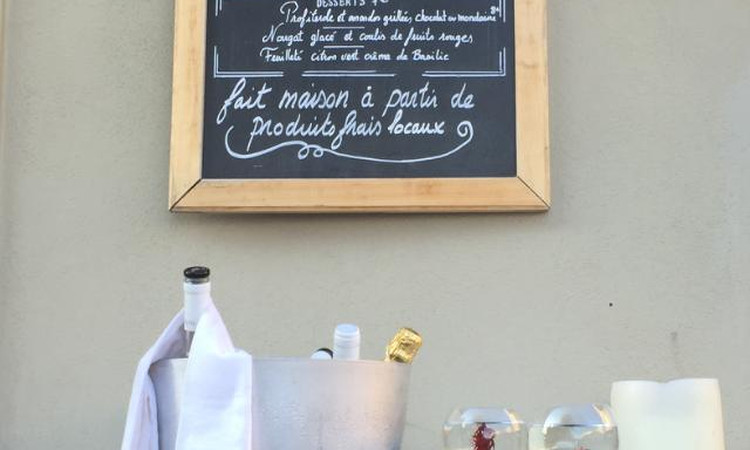 DESSERTS 7€
Profiterole et amandes grillées, chocolat ou mandarine 8€
Nougat glacé et coulis de fruits rouges
Feuilleté citron vert crème de Basilic
fait maison à partir de
produits frais locaux